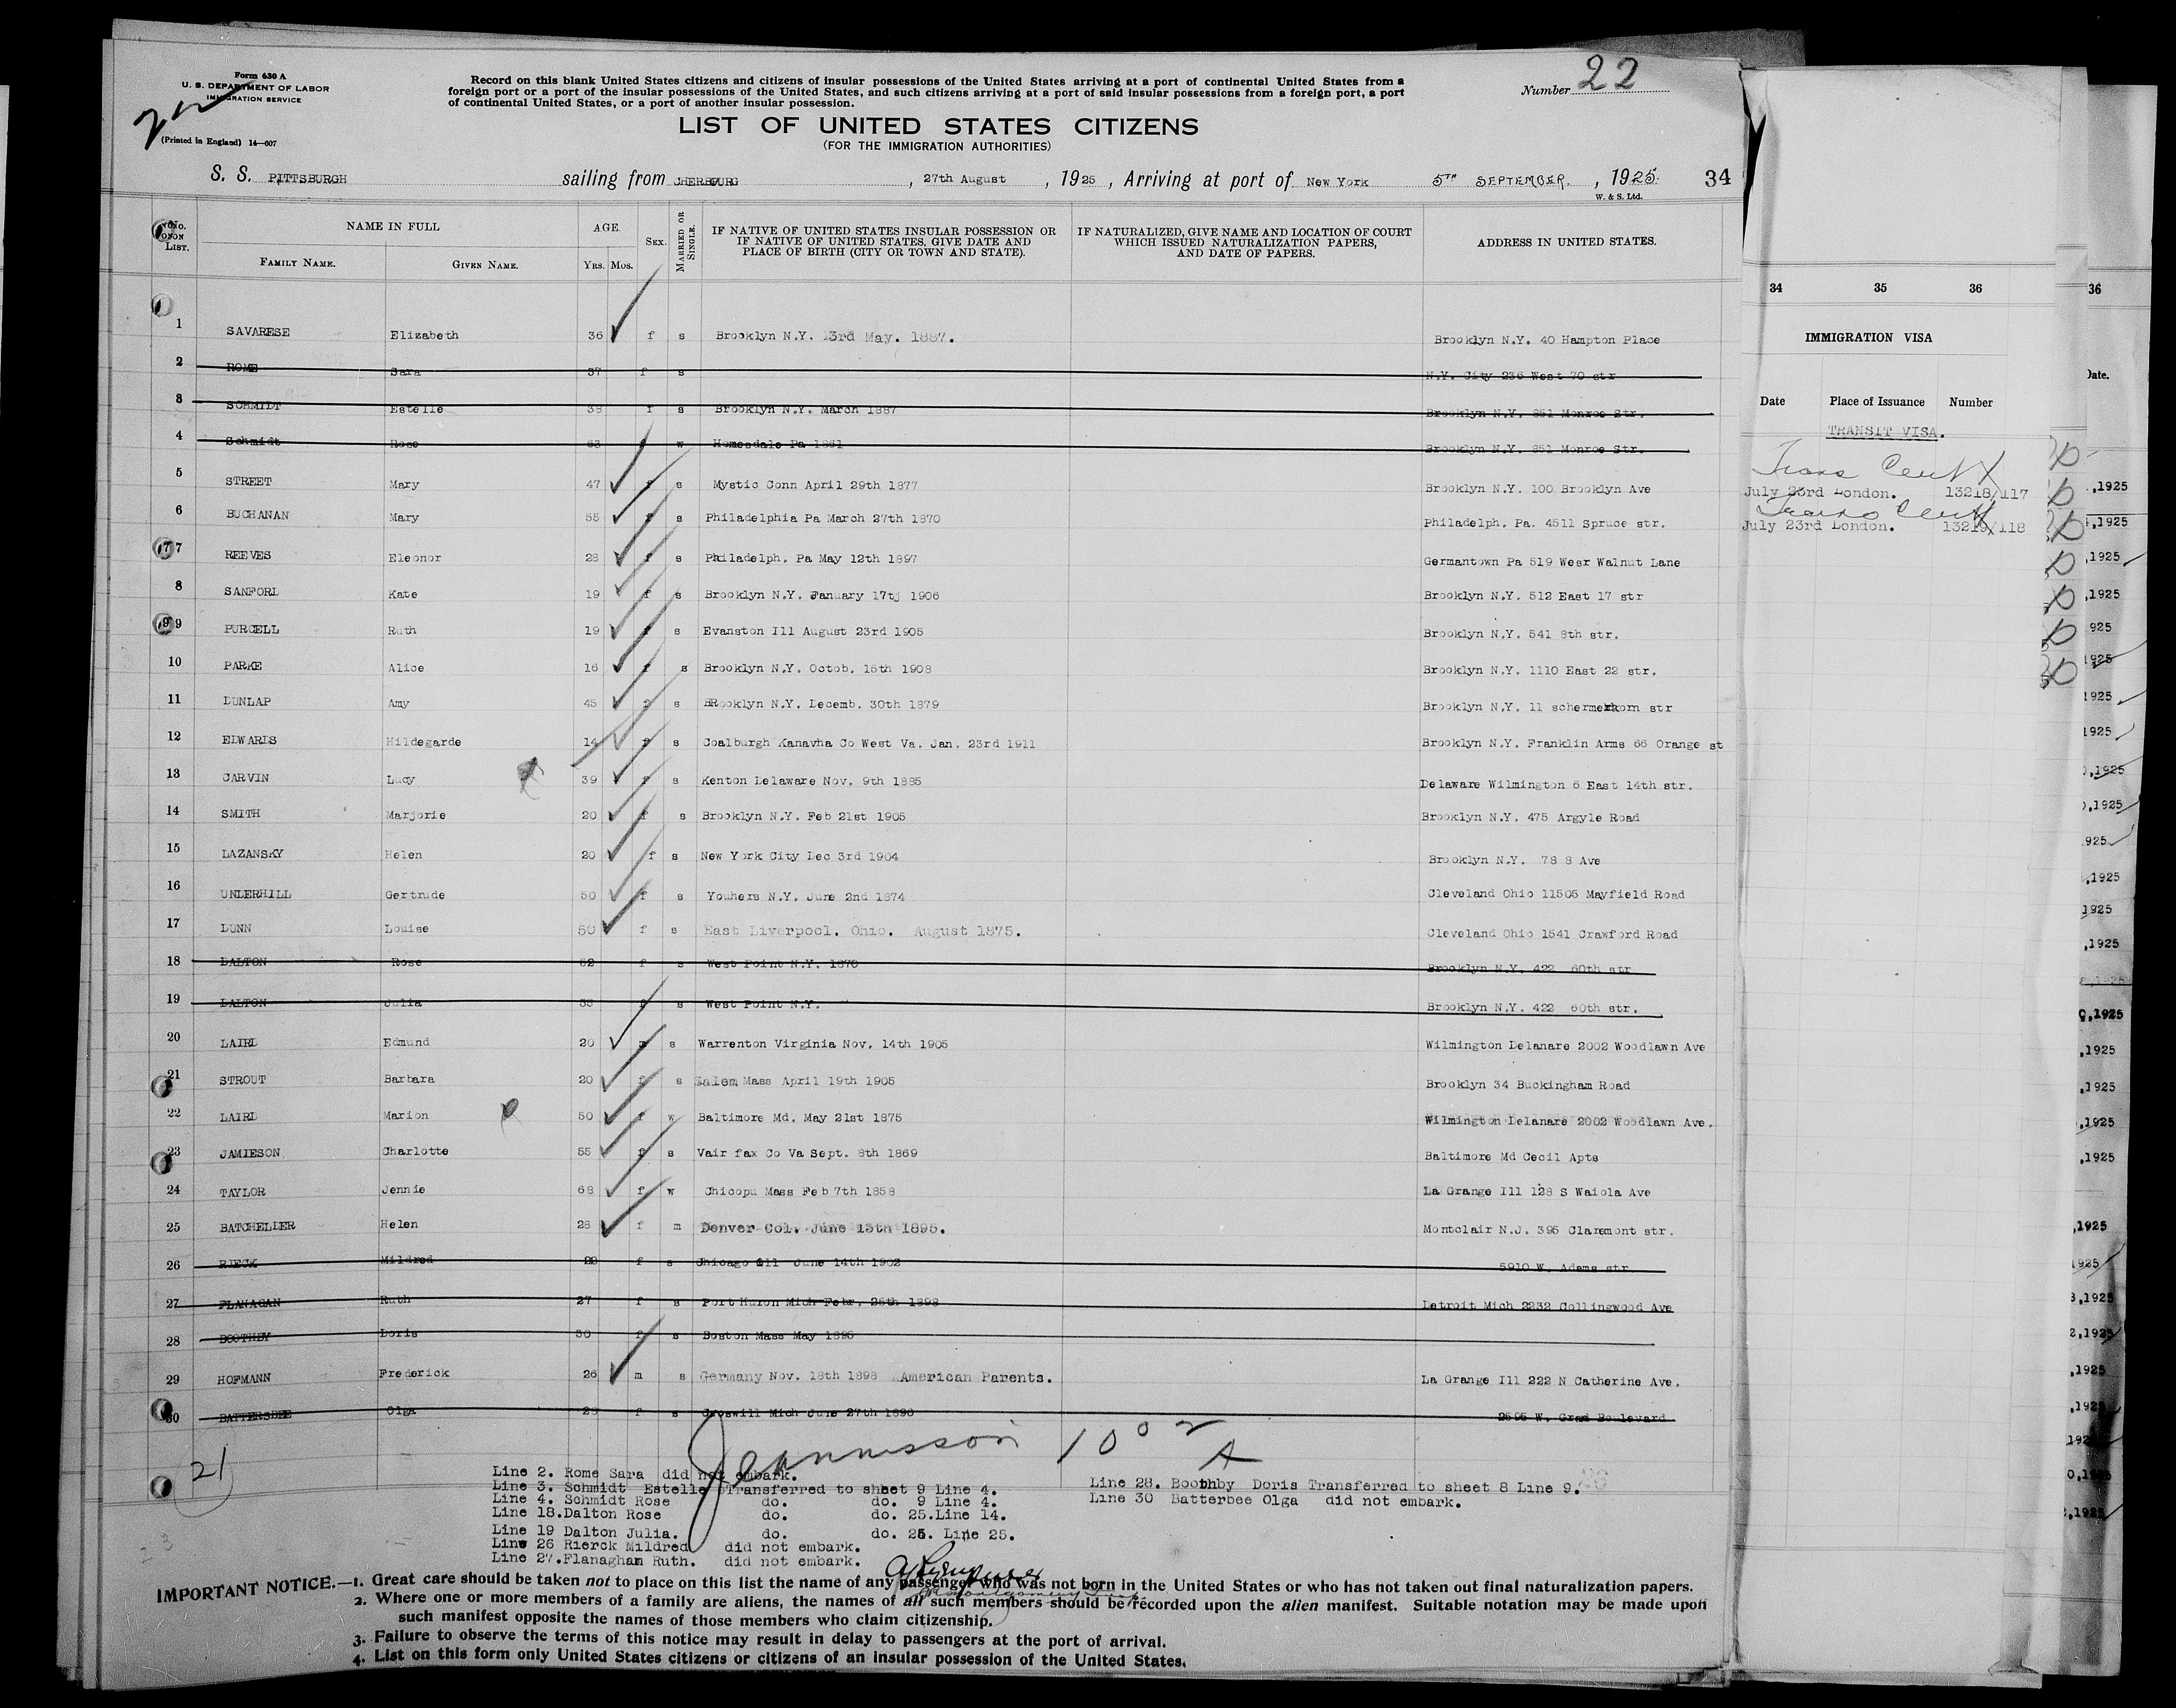 Form 630 A
U. S. DEPARTMENT OF LABOR
IMMIGRATION SERVICE
(Printed in England) 14—607
Record on this blank United States citizens and citizens of insular possessions of the United States arriving at a port of continental United States from a
foreign port or a port of the insular possessions of the United States, and such citizens arriving at a port of said insular possessions from a foreign port, a port
of continental United States, or a port of another insular possession.
Number 22
LIST OF UNITED STATES CITIZENS
(FOR THE IMMIGRATION AUTHORITIES)
S. S. PITTSBURGH sailing from CHERBOURG, 27th August, 1925, Arriving at port of New York 5TH SEPTEMBER, 1925. 34
W. & S. Ltd.
No. on List. NAME IN FULL AGE. SEX. MARRIED OR SINGLE. IF NATIVE OF UNITED STATES INSULAR POSSESSION OR IF NATIVE OF UNITED STATES, GIVE DATE AND PLACE OF BIRTH (CITY OR TOWN AND STATE). IF NATURALIZED, GIVE NAME AND LOCATION OF COURT WHICH ISSUED NATURALIZATION PAPERS, AND DATE OF PAPERS. ADDRESS IN UNITED STATES.
FAMILY NAME. GIVEN NAME. YRS. MOS.
1 SAVARESE Elizabeth 36 f s Brooklyn N.Y. 3rd May. 1887. Brooklyn N.Y. 40 Hampton Place
2 ROME Sara 37 f s N.Y. City 236 West 70 str
3 SCHMIDT Estelle 38 f s Brooklyn N.Y. March 1887 Brooklyn N.Y. 851 Monroe Str.
4 Schmidt Rose 63 w Honesdale Pa 1861 Brooklyn N.Y. 851 Monroe Str.
5 STREET Mary 47 f s Mystic Conn April 29th 1877 Brooklyn N.Y. 100 Brooklyn Ave
6 BUCHANAN Mary 55 f s Philadelphia Pa March 27th 1870 Philadelph. Pa. 4511 Spruce str.
7 REEVES Eleonor 28 f s Philadelph. Pa May 12th 1897 Germantown Pa 519 Wesr Walnut Lane
8 SANFORD Kate 19 f s Brooklyn N.Y. January 17tj 1906 Brooklyn N.Y. 512 East 17 str
9 PURCELL Ruth 19 f s Evanston Ill August 23rd 1905 Brooklyn N.Y. 541 8th str.
10 PARKE Alice 16 f s Brooklyn N.Y. Octob. 15th 1908 Brooklyn N.Y. 1110 East 22 str.
11 DUNLAP Amy 45 f s BRooklyn N.Y. Decemb. 30th 1879 Brooklyn N.Y. 11 schermerkorn str
12 EDWARDS Hildegarde 14 f s Coalburgh Kanavha Co West Va. Jan. 23rd 1911 Brooklyn N.Y. Franklin Arms 66 Orange st
13 CARVIN Lucy 39 f s Kenton Delaware Nov. 9th 1885 Delaware Wilmington 6 East 14th str.
14 SMITH Marjorie 20 f s Brooklyn N.Y. Feb 21st 1905 Brooklyn N.Y. 475 Argyle Road
15 LAZANSKY Helen 20 f s New York City Dec 3rd 1904 Brooklyn N.Y. 78 8 Ave
16 UNDERHILL Gertrude 50 f s Youhers N.Y. June 2nd 1874 Cleveland Ohio 11505 Mayfield Road
17 DUNN Louise 50 f s East Liverpool. Ohio. August 1875. Cleveland Ohio 1541 Crawford Road
18 DALTON Rose 52 f s West Point N.Y. 1870 Brooklyn N.Y. 422 60th str
19 DALTON Julia f s West Point N.Y. Brooklyn N.Y. 422 60th str.
20 LAIRD Edmund 20 m s Warrenton Virginia Nov. 14th 1905 Wilmington Delanare 2002 Woodlawn Ave
21 STROUT Barbara 20 f s Salem Mass April 19th 1905 Brooklyn 34 Buckingham Road
22 LAIRD Marion 50 f w Baltimore Md. May 21st 1875 Wilmington Delanare 2002 Woodlawn Ave.
23 JAMIESON Charlotte 55 f s Vair fax Co Va Sept. 8th 1869 Baltimore Md Cecil Apts
24 TAYLOR Jennie 68 f w Chicopu Mass Feb 7th 1858 La Grange Ill 128 S Waiola Ave
25 BATCHELIER Helen 28 f m Denver Col. June 13th 1895. Montclair N.J. 395 Claremont str.
26 RIECK Mildred f s Chicago Ill June 14th 1902 5910 W. Adams str
27 FLANAGAN Ruth 27 f s Port Huron Mich Febr. 25th 1898 Detroit Mich 2232 Collingwood Ave
28 BOOTHBY Doris 30 f s Boston Mass May 1895
29 HOFMANN Frederick 26 m s Germany Nov. 18th 1898 American Parents. La Grange Ill 222 N Catherine Ave.
30 BATTERSBEE Olga f s Croswill Mich June 27th 1896 2595 W. Grad Boulevard
21
Line 2. Rome Sara did not embark.
Line 3. Schmidt Estelle Transferred to sheet 9 Line 4.
Line 4. Schmidt Rose do. do. 9 Line 4.
Line 18. Dalton Rose do. do. 25. Line 14.
Line 19 Dalton Julia. do. do. 25. Line 25.
Line 26 Rierck Mildred did not embark.
Line 27. Flanaghan Ruth. did not embark.
Line 28. Boothby Doris Transferred to sheet 8 Line 9.
Line 30 Batterbee Olga did not embark.
IMPORTANT NOTICE.—1. Great care should be taken not to place on this list the name of any passenger who was not born in the United States or who has not taken out final naturalization papers.
2. Where one or more members of a family are aliens, the names of all such members should be recorded upon the alien manifest. Suitable notation may be made upon
such manifest opposite the names of those members who claim citizenship.
3. Failure to observe the terms of this notice may result in delay to passengers at the port of arrival.
4. List on this form only United States citizens or citizens of an insular possession of the United States.
34 35 36
IMMIGRATION VISA
Date Place of Issuance Number
TRANSIT VISA.
July 23rd London. 13218/117
July 23rd London. 13219/118
36
Date.